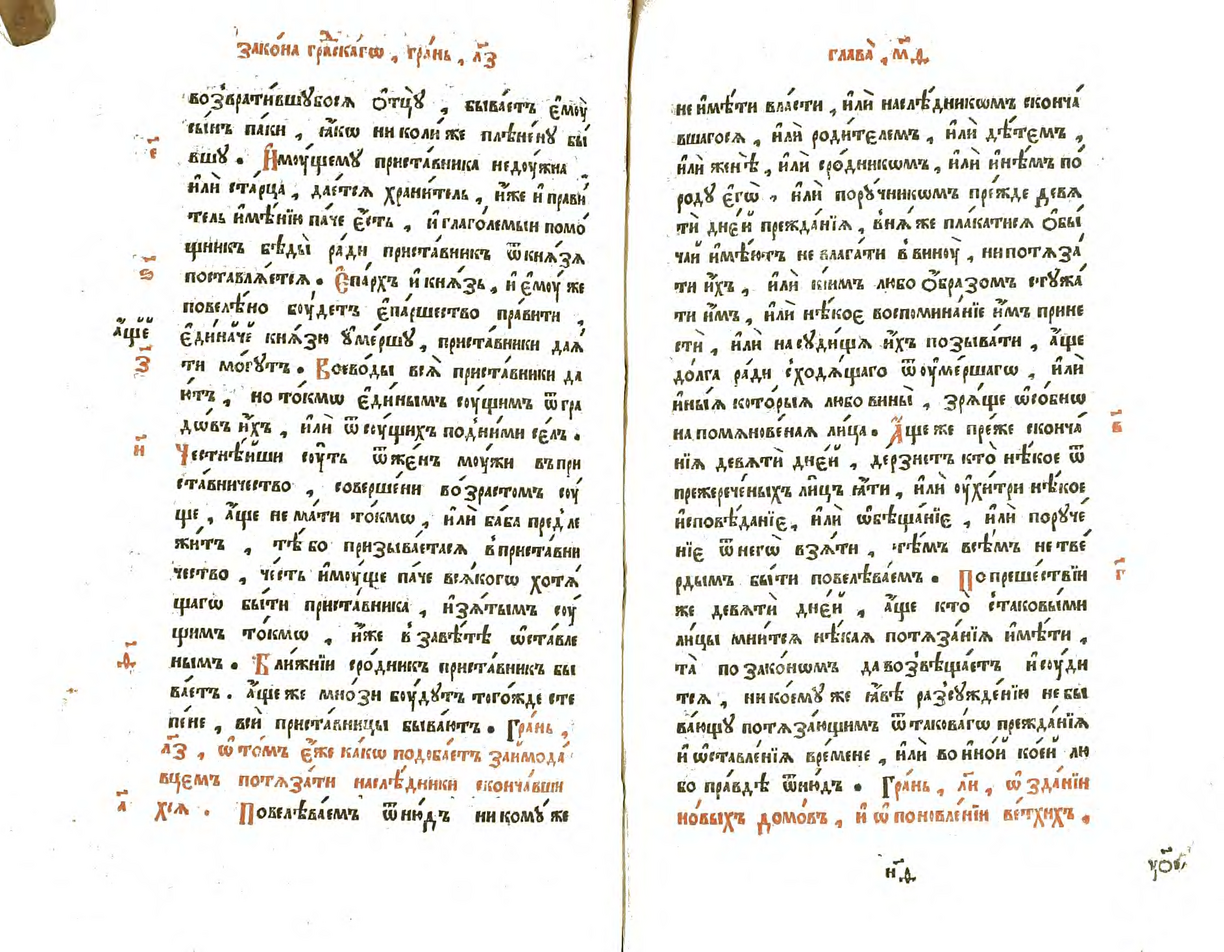 зако́на гра́дскагѡ , гра́нь , л҃з
возврати́вшубося ѻ҆тцу̀ , быва́етъ є҆моу̀
сы́нъ па́ки , ꙗ҆́кѡ николи́же плѣне́ну бы́
е҃
вшу . И҆моу́щему приста́вника недоу́жна
и҆лѝ ста́рца , дае́тся храни́тель , и҆́же и҆ прави́
тель и҆мѣ́нїи па́че є҆́сть , и҆ глаго́лемыи помо́
щникъ бѣды̀ ра́ди приста́вникъ ѿ кня́зя
ѕ҃
поставля́ется . Є҆па́рхъ и҆ кня́зь , и҆ є҆моу́же
повелѣ́но боу́детъ є҆па́ршество пра́вити ,
а҆́ще
є҆дина́че кня́зю ᲂу҆ме́ршу , приста́вники дая́
з҃
ти мо́гутъ . Воево́ды всѧ̀ приста́вники да
ю́тъ , но то́кмѡ є҆ди́нымъ соу́щимъ ѿ гра
дѡ́въ и҆́хъ , и҆лѝ ѿ соу́щихъ под̾ни́ми се́лъ .
и҃
Честнѣ́йши соу́ть ѿ же́нъ моу́жи въ при
ста́вничество , соверше́ни во́зрастомъ соу́
ще , а҆́ще не ма́ти то́кмѡ , и҆лѝ ба́ба пред̾ле
жи́тъ , тѣ́ бо призыва́етася в̾ приста́вни
чество , че́сть и҆моу́ще па́че вся́когѡ хотя́
щагѡ бы́ти приста́вника , и҆зя́тымъ соу́
щимъ то́кмѡ , и҆́же в̾ завѣ́тѣ ѡ҆ста́вле
ѳ҃
нымъ . Бли́жнїи сро́дникъ приста́вникъ бы
ва́етъ . а҆́ще же мно́зи боу́дутъ того́жде сте
пе́не , всѝ приста́вницы быва́ютъ . Гра́нь ,
л҃з , ѡ҆ то́мъ є҆́же ка́кѡ подоба́етъ займода́
вцемъ потяза́ти наслѣ́дники сконча́вши
а҃
хся . Повелѣва́емъ ѿню́дъ никому́же
глава̀ , м҃д
не и҆мѣ́ти вла́сти , и҆лѝ наслѣ́дникѡмъ сконча́
вшагося , и҆лѝ роди́телемъ , и҆лѝ дѣ́темъ ,
и҆лѝ женѣ̀ , и҆лѝ сро́дникѡмъ , и҆лѝ и҆нѣ́мъ по
роду є҆гѡ̀ , и҆лѝ пору́чникѡмъ пре́жде девя
тѝ дне́й прежда́нїя , в̾ ня́же пла́катися ѻ҆бы́
чаи и҆мѣ́ютъ не влага́ти в̾ виноу̀ , ни потяза́
ти и҆́хъ , и҆лѝ кіи́мъ любо ѻ҆́бразомъ стужа́
ти и҆́мъ , и҆лѝ нѣ́кое воспомина́нїе и҆́мъ прине
стѝ , и҆лѝ на суди́щя и҆́хъ позыва́ти , а҆́ще
до́лга ра́ди сходя́щаго ѿ оу҆ме́ршагѡ , и҆лѝ
и҆ны́я кото́рыя любо вины̀ , зря́ще ѡ҆со́бнѡ
в҃
на помянове́ная ли́ца . А҆́ще же пре́же сконча́
нїя девятѝ дне́й , де́рзнетъ кто̀ нѣ́кое ѿ
прежерече́ныхъ ли́цъ ꙗ҆́ти , и҆лѝ оу҆хитри́ нѣ́кое
и҆сповѣ́данїе , и҆лѝ ѡ҆бѣща́нїе , и҆лѝ поруче́
нїе ѿ негѡ̀ взя́ти , тѣ́мъ всѣ́мъ не тве́
г҃
рдымъ бы́ти повелѣва́емъ . По преше́ствїи
же девятѝ дне́й , а҆́ще кто̀ с̾таковы́ми
ли́цы мни́тся нѣ́кая потяза́нїя и҆мѣ́ти ,
та̀ по зако́нѡмъ да возвѣща́етъ и҆ соу́ди
тся , ни коему́же ꙗ҆́вѣ разсужде́нїю не бы
ва́ющу потяза́ющимъ ѿ такова́гѡ прежда́нїя
и҆ ѡ҆ставле́нїя вре́мене , и҆лѝ во и҆но́й кое́й лю
бо пра́вдѣ ѿню́дъ . Гра́нь , л҃и , ѡ҆ зда́нїи
но́выхъ домо́въ , и҆ ѡ҆ поновле́нїи ве́тхихъ .
н҃д